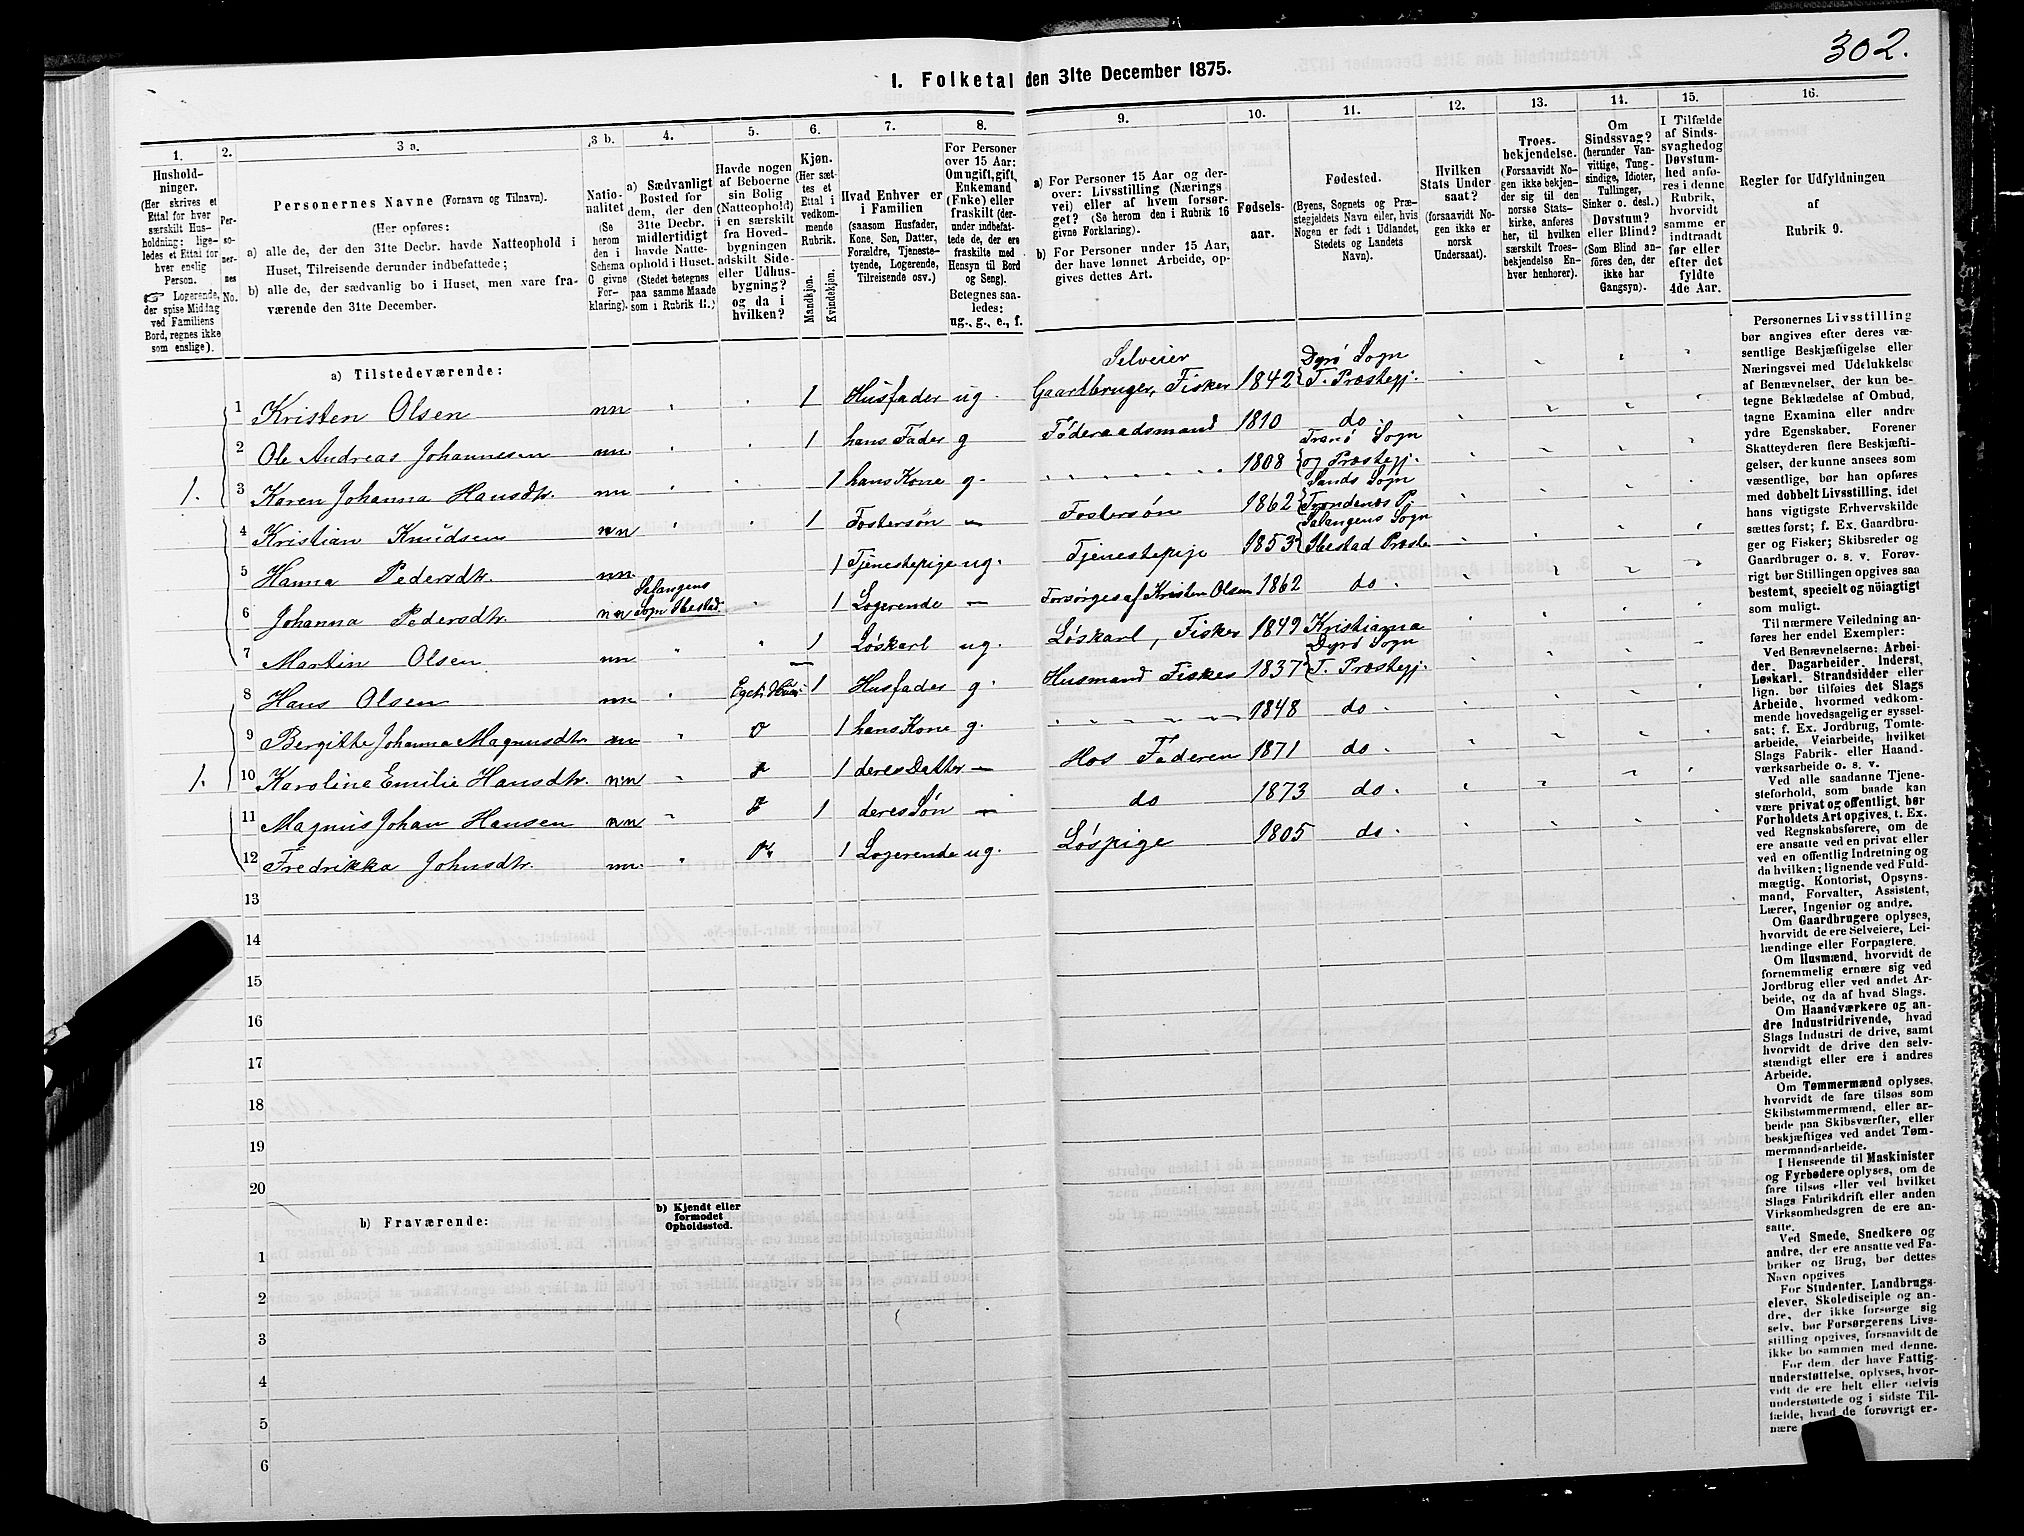 302.
1. Folketal den 31te December 1875.
1.
Husholdninger.
(Her skrives et
Ettal for hver
særskilt Husholdning; ligeledes et Ettal for
hver enslig
Person.
☞ Logerende,
der spise Middag
ved Familiens
Bord, regnes ikke
som enslige).
2.
Personernes
No.
3 a.
Personernes Navne (Fornavn og Tilnavn).
(Her opføres:
a) alle de, der den 31te Decbr. havde Natteophold i
Huset, Tilreisende derunder indbefattede;
b) alle de, der sædvanlig bo i Huset, men vare fraværende den 31te December.
3 b.
Nationalitet
(Se
herom
den i
Schema
6 givne
Forklaring).
4.
a) Sædvanligt
Bosted for
dem, der den
31te Decbr.
midlertidigt
havde Natteophold i Huset.
(Stedet betegnes
paa samme Maade
som i Rubrik 11.)
5.
Havde nogen
af Beboerne
sin Bolig
(Natteophold)
i en særskilt
fra Hovedbygningen
adskilt Side-
eller Udhusbygning?
og da i
hvilken?
6.
Kjøn.
(Her sættes et
Ettal i
vedkommende
Rubrik.
Mandkjøn.
Kvindekjøn.
7.
Hvad Enhver er
i Familien
(saasom Husfader,
Kone, Søn, Datter,
Forældre, Tjenestetyende, Logerende,
Tilreisende osv.)
8.
For Personer
over 15 Aar:
Om ugift, gift,
Enkemand
(Enke) eller
fraskilt (derunder indbefattede de, der ere
fraskilte med
Hensyn til Bord
og Seng).
Betegnes saaledes:
ug., g., e., f.
9.
a) For Personer 15 Aar og derover: Livsstilling (Næringsvei) eller af hvem forsørget? (Se herom den i Rubrik 16
givne Forklaring).
b) For Personer under 15 Aar,
der have lønnet Arbeide, opgives dettes Art.
10.
Fødselsaar.
11.
Fødested.
(Byens, Sognets og Præstegjeldets Navn eller, hvis
Nogen er født i Udlandet,
Stedets og Landets
Navn).
12.
Hvilken
Stats Undersaat?
(forsaavidt Nogen ikke er
norsk
Undersaat).
13.
Troesbekjendelse.
(Forsaavidt Nogen ikke bekjender sig til den
norske Statskirke, anføres
her, til hvilken
særskilt Troesbekjendelse Enhver henhører).
14.
Om
Sindssvag?
(herunder Vanvittige, Tungsindige, Idioter,
Tullinger,
Sinker o. desl.)
Døvstum?
eller Blind?
(Som Blind anføres den, der
ikke har
Gangsyn).
15.
I Tilfælde
af Sindssvaghed og
Døvstumhed anføres i denne
Rubrik,
hvorvidt
samme er
indtraadt
før eller
efter det
fyldte
4de Aar.
16.
Regler for Udfyldningen
af
Rubrik 9.
a) Tilstedeværende:
1 Kristen Olsen nn 1 Husfader ug. Selveier Gaardbruger, Fisker 1842 Dyrö Sogn T. Præstegj.
2 Ole Andreas Johannesen nn 1 hans Fader g Föderaadsmand 1810 do
1. 3 Karen Johanna Hansdtr. nn 1 hans Kone g. 1808 Tranö Sogn og Præstegj.
4 Kristian Knudsen nn 1 Fostersön Fostersön 1862 Sands Sogn Trondenæs P.
5 Hanna Pedersdtr. nn 1 Tjenestepige ug. Tjenestepige 1853 Salangens Sogn Ibestad Præste
6 Johanna Pedersdtr. nn Salangens Sogn Ibestad. 1 Logerende Forsörges af Kristen Olsen 1862 do
7 Martin Olsen nn 1 Löskarl ug. Löskarl, Fisker 1849 Kristiania
8 Hans Olsen nn 1 Husfader g. Husmand Fisker 1837 Dyrö Sogn T. Præstegj.
9 Bergitte Johanna Magnusdtr. nn 1 hans Kone g. 1848 do
1. 10 Karoline Emilie Hansdtr. nn 1 deres Datter Hos Faderen 1871 do
11 Magnus Johan Hansen nn 1 deres Sön do 1873 do
12 Fredrikka Johnsdtr. nn 1 Logerende ug. Löspige 1805 do
13
14
15
16
17
18
19
20
b) Fraværende:
b) Kjendt eller
formodet
Opholdssted.
1
2
3
4
5
6
Personernes Livsstilling
bør angives efter deres væsentlige Beskjæftigelse eller
Næringsvei med Udelukkelse
af Benævnelser, der kun betegne Beklædelse af Ombud,
tagne Examina eller andre
ydre Egenskaber. Forener
Skatteyderen flere Beskjæftigelser, der kunne ansees som
væsentlige, bør han opføres
med dobbelt Livsstilling, idet
hans vigtigste Erhvervskilde
sættes først; f. Ex. Gaardbruger og Fisker; Skibsreder og
Gaardbruger o. s. v. Forøvrigt bør Stillingen opgives saa
bestemt, specielt og nöiagtigt
som muligt.
Til nærmere Veiledning anføres her endel Exempler:
Ved Benævnelserne: Arbeider, Dagarbeider, Inderst,
Løskarl, Strandsidder eller
lign. bør tilføies det Slags
Arbeide, hvormed vedkommende hovedsagelig er sysselsat; f. Ex. Jordbrug, Tomtearbeide, Veiarbeide, hvilket
Slags Fabrik- eller Haandværksarbeide o. s. v.
Ved alle saadanne Tjenesteforhold, som baade kan
være privat og offentligt, bør
Forholdets Art opgives, t. Ex.
ved Regnskabsførere, om de
ere ansatte ved en privat eller
ved en offentlig Indretning og
da hvilken; lignende ved Fuldmægtig, Kontorist, Opsynsmand, Forvalter, Assistent,
Lærer, Ingeniør og andre.
Om Gaardbrugere oplyses,
hvorvidt de ere Selveiere, Leilændinge eller Forpagtere.
Om Husmænd, hvorvidt de
fornemmelig ernære sig ved
Jordbrug eller ved andet Arbeide, og da af hvad Slags.
Om Haandværkere og andre Industridrivende, hvad
Slags Industri de drive, samt
hvorvidt de drive den selvstændigt eller ere i andres
Arbeide.
Om Tømmermænd oplyses,
hvorvidt de fare tilsøs som
Skibstømmermænd, eller arbeide paa Skibsværfter, eller
beskjæftiges ved andet Tømmermandsarbeide.
I Henseende til Maskinister
og Fyrbødere oplyses, om de
fare tilsøs eller ved hvilket
Slags Fabrikdrift eller anden
Virksomhedsgren de ere ansatte.
Ved Smede, Snedkere og
andre, der ere ansatte ved Fabriker og Brug, bør dettes
Navn opgives
For Studenter, Landbrugselever, Skoledisciple og andre, der ikke forsørge sig
selv, bør Forsørgerens Livsstilling opgives, forsaavidt de
ikke bo sammen med denne.
For dem, der have Fattigunderstøttelse, oplyses, hvorvidt de ere helt eller delvis
understøttede og i sidste Tilfælde, hvad de forøvrigt ernære